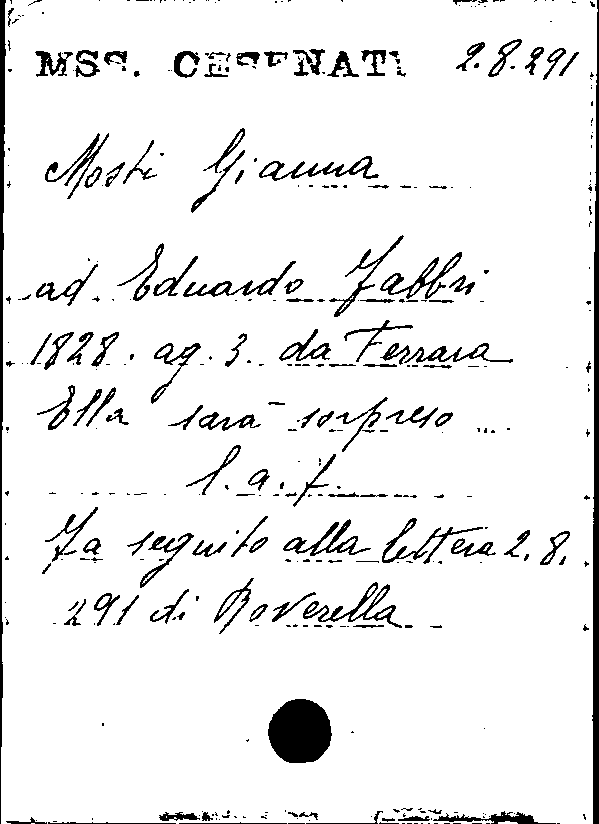 MSS. CESENATI 2.8.291
Mosti Gianna
ad Eduardo Fabbri
1828. ag. 3. da Ferrara
Ella sarà sorpreso ...
l.a.f.
Fa seguito alla lettera 2.8.
291 di Roverella